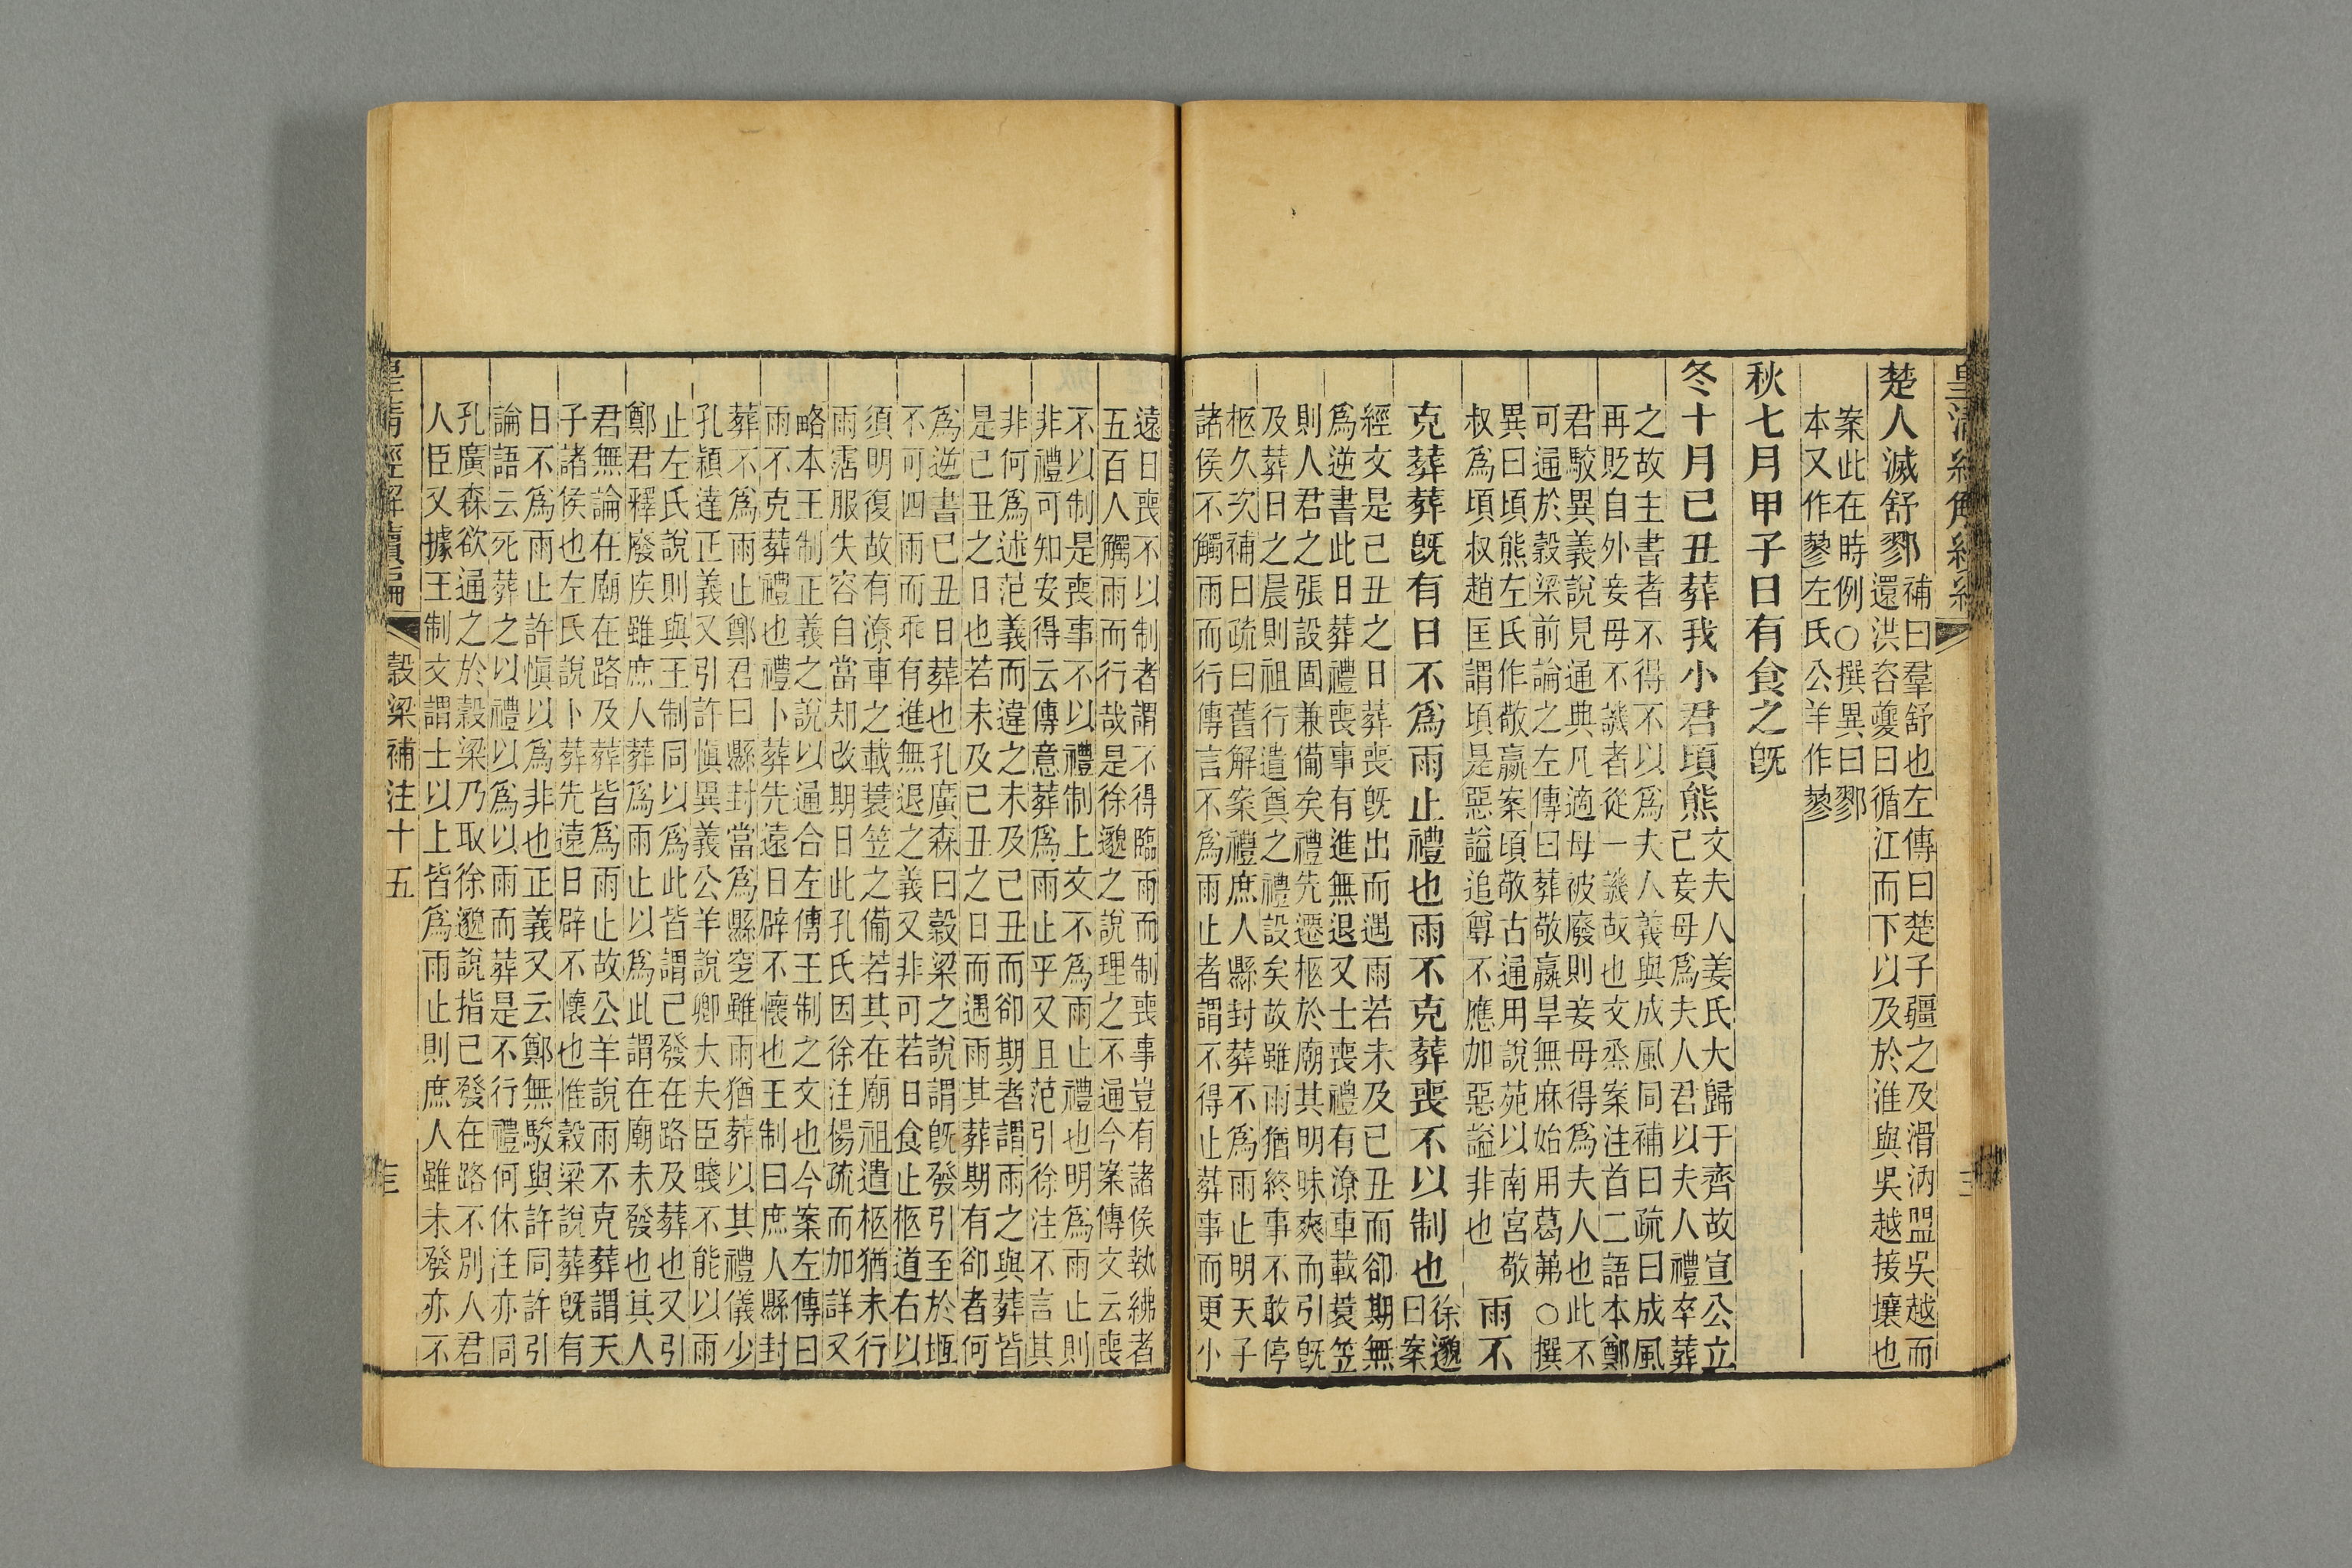 皇清經解續編
楚人滅舒鄝補曰羣舒也左傳曰楚子疆之及滑汭盟吳越而
還洪咨夔曰循江而下以及於淮與吳越接壤也
案此在時例○撰異曰鄝
本又作蓼左氏公羊作蓼
秋七月甲子日有食之旣
冬十月己丑葬我小君頃熊文夫人姜氏大歸于齊故宣公立
己妾母爲夫人君以夫人禮卒葬
之故主書者不得不以爲夫人義與成風同補曰疏曰成風
再貶自外妾母不譏者從一譏故也文烝案注首二語本鄭
君駮異義說見通典凡適母被廢則妾母得爲夫人也此不
可通於穀梁前論之左傳曰葬敬嬴旱無麻始用葛茀○撰
異曰頃熊左氏作敬嬴案頃敬古通用說苑以南宮敬
叔爲頃叔趙匡謂頃是惡謚追尊不應加惡謚非也
雨不
克葬葬旣有日不爲雨止禮也雨不克葬喪不以制也徐邈
曰案
經文是己丑之日葬喪旣出而遇雨若未及己丑而卻期無
爲逆書此日葬禮喪事有進無退又士喪禮有潦車載蓑笠
則人君之張設固兼備矣禮先遷柩於廟其明昧爽而引旣
及葬日之晨則祖行遣奠之禮設矣故雖雨猶終事不敢停
柩久次補曰疏曰舊解案禮庶人縣封葬不爲雨止明天子
諸侯不觸雨而行傳言不爲雨止者謂不得止葬事而更小
遠日喪不以制者謂不得臨雨而制喪事豈有諸侯執紼者
五百人觸雨而行哉是徐邈之說理之不通今案傳文云喪
不以制是喪事不以禮制上文不爲雨止禮也明爲雨止則
非禮可知安得云傳意葬爲雨止乎又且范引徐注不言其
非何爲述范義而違之未及己丑而卻期者謂雨之與葬皆
是己丑之日也若未及己丑之日而遇雨其葬期有卻者何
爲逆書己丑日葬也孔廣森曰穀梁之說謂旣發引至於堩
不可四雨而乖有進無退之義又非可若日食止柩道右以
須明復故有潦車之載蓑笠之備若其在廟祖遣柩猶未行
雨霑服失容自當却改期日此孔氏因徐注楊疏而加詳又
略本王制正義之說以通合左傳王制之文也今案左傳曰
雨不克葬禮也禮卜葬先遠日辟不懷也王制曰庶人縣封
葬不爲雨止鄭君曰縣封當爲縣窆雖雨猶葬以其禮儀少
孔穎達正義又引許愼異義公羊說卿大夫臣賤不能以雨
止左氏說則與王制同以爲此皆謂已發在路及葬也又引
鄭君釋廢疾雖庶人葬爲雨止以爲此謂在廟未發也其人
君無論在廟在路及葬皆爲雨止故公羊說雨不克葬謂天
子諸侯也左氏說卜葬先遠日辟不懷也惟穀梁說葬旣有
日不爲雨止許愼以爲非也正義又云鄭無駮與許同許引
論語云死葬之以禮以爲以雨而葬是不行禮何休注亦同
孔廣森欲通之於穀梁乃取徐邈說指已發在路不別人君
人臣又據王制文謂士以上皆爲雨止則庶人雖未發亦不
皇清經解續編
穀梁補注十五